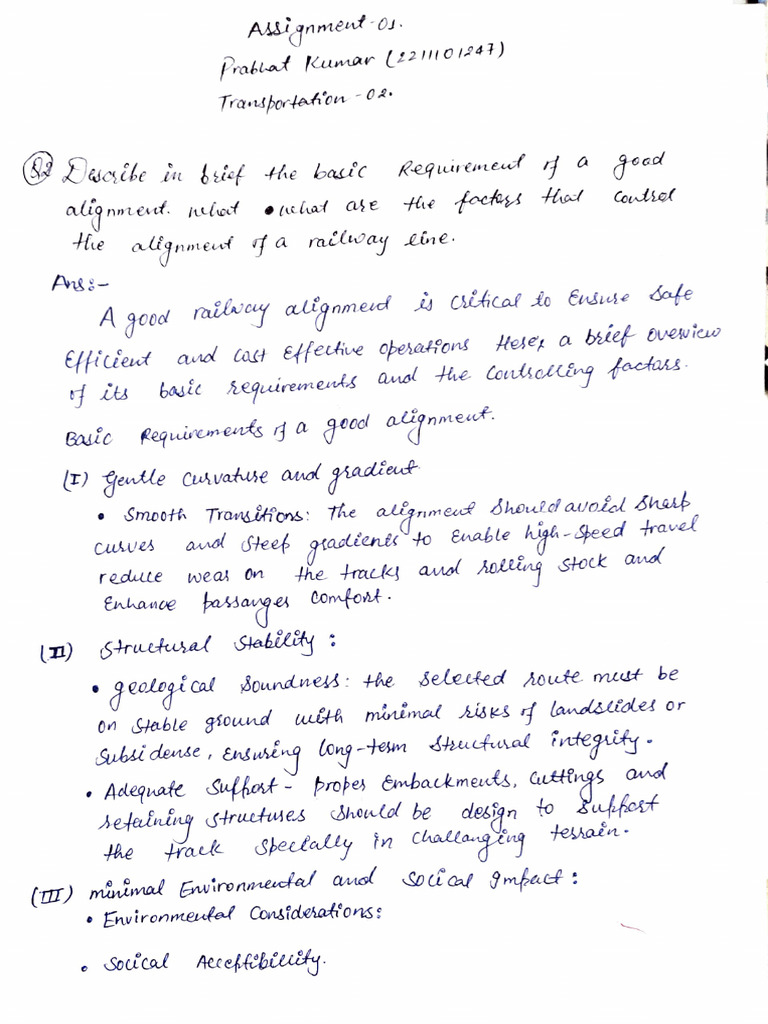 Assignment-01.
Prabhat Kumar (2211101247)
Transportation-02.
Q2 Describe in brief the basic Requirement of a good
alignment. what what are the factors that control
the alignment of a railway line.
Ans:-
A good railway alignment is critical to Ensure Safe
Efficient and Cost Effective operations Here's a brief overview
of its basic requirements and the Controlling factors.
Basic Requirements of a good alignment.
(I) Gentle Curvature and gradient
• Smooth Transitions: The alignment Should avoid Sharp
curves and Steep gradients to Enable high-Speed travel
reduce wear on the tracks and rolling Stock and
Enhance passanges Comfort.
(II) Structural Stability:
• geological Soundness: the Selected route must be
on Stable ground with minimal risks of landslides or
Subsidense, Ensuring long-term Structural integrity.
• Adequate Support - Proper Embackments, Cuttings and
retaining Structures Should be design to Support
the track Specially in Challanging terrain.
(III) minimal Environmental and Socical Impact:
• Environmental Considerations:
• Socical Acceptibillity.